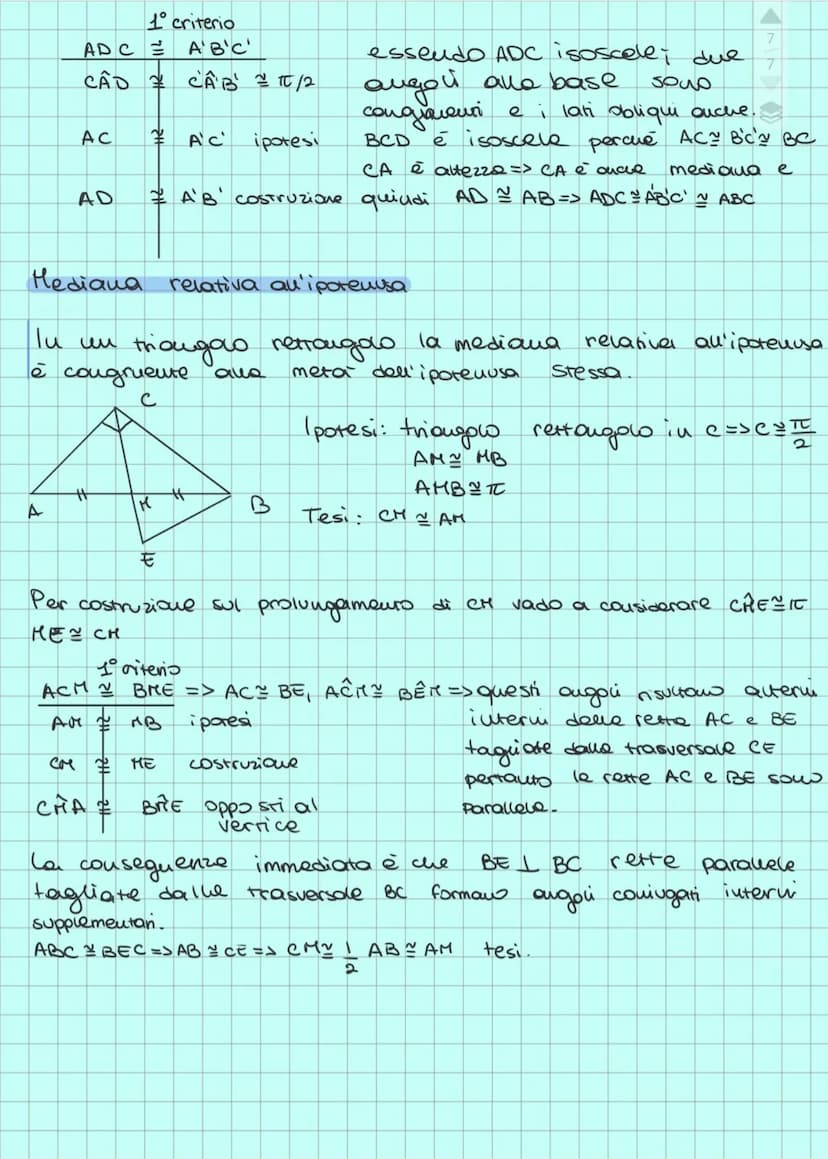 1° criterio
ADC ≅ A'B'C'
CÂD ≅ C'Â'B' ≅ π/2
AC ≅ A'C' ipotesi
AD ≅ A'B' costruzione
essendo ADC isoscele i due
angoli alla base sono
congruenti e i lati obliqui anche.
BCD è isoscele perché AC ≅ B'C' ≅ BC
CA è altezza => CA è anche mediana e
quindi AD ≅ AB => ADC ≅ A'B'C' ≅ ABC
7
7
Mediana relativa all'ipotenusa
In un triangolo rettangolo la mediana relativa all'ipotenusa
è congruente alla metà dell'ipotenusa stessa.
C
A
M
B
E
Ipotesi: triangolo rettangolo in C => C ≅ π/2
AM ≅ MB
AMB ≅ π
Tesi: CM ≅ AM
Per costruzione sul prolungamento di CM vado a considerare CM̂E ≅ π
ME ≅ CM
1° criterio
ACM ≅ BME => AC ≅ BE, AĈM ≅ BÊM => questi angoli risultano alterni
interni delle rette AC e BE
tagliate dalla trasversale CE
pertanto le rette AC e BE sono
parallele.
AM ≅ MB ipotesi
CM ≅ ME costruzione
CM̂A ≅ BM̂E opposti al
vertice
La conseguenza immediata è che BE ⊥ BC rette parallele
tagliate dalla trasversale BC formano angoli coniugati interni
supplementari.
ABC ≅ BEC => AB ≅ CE => CM ≅ 1/2 AB ≅ AM tesi.